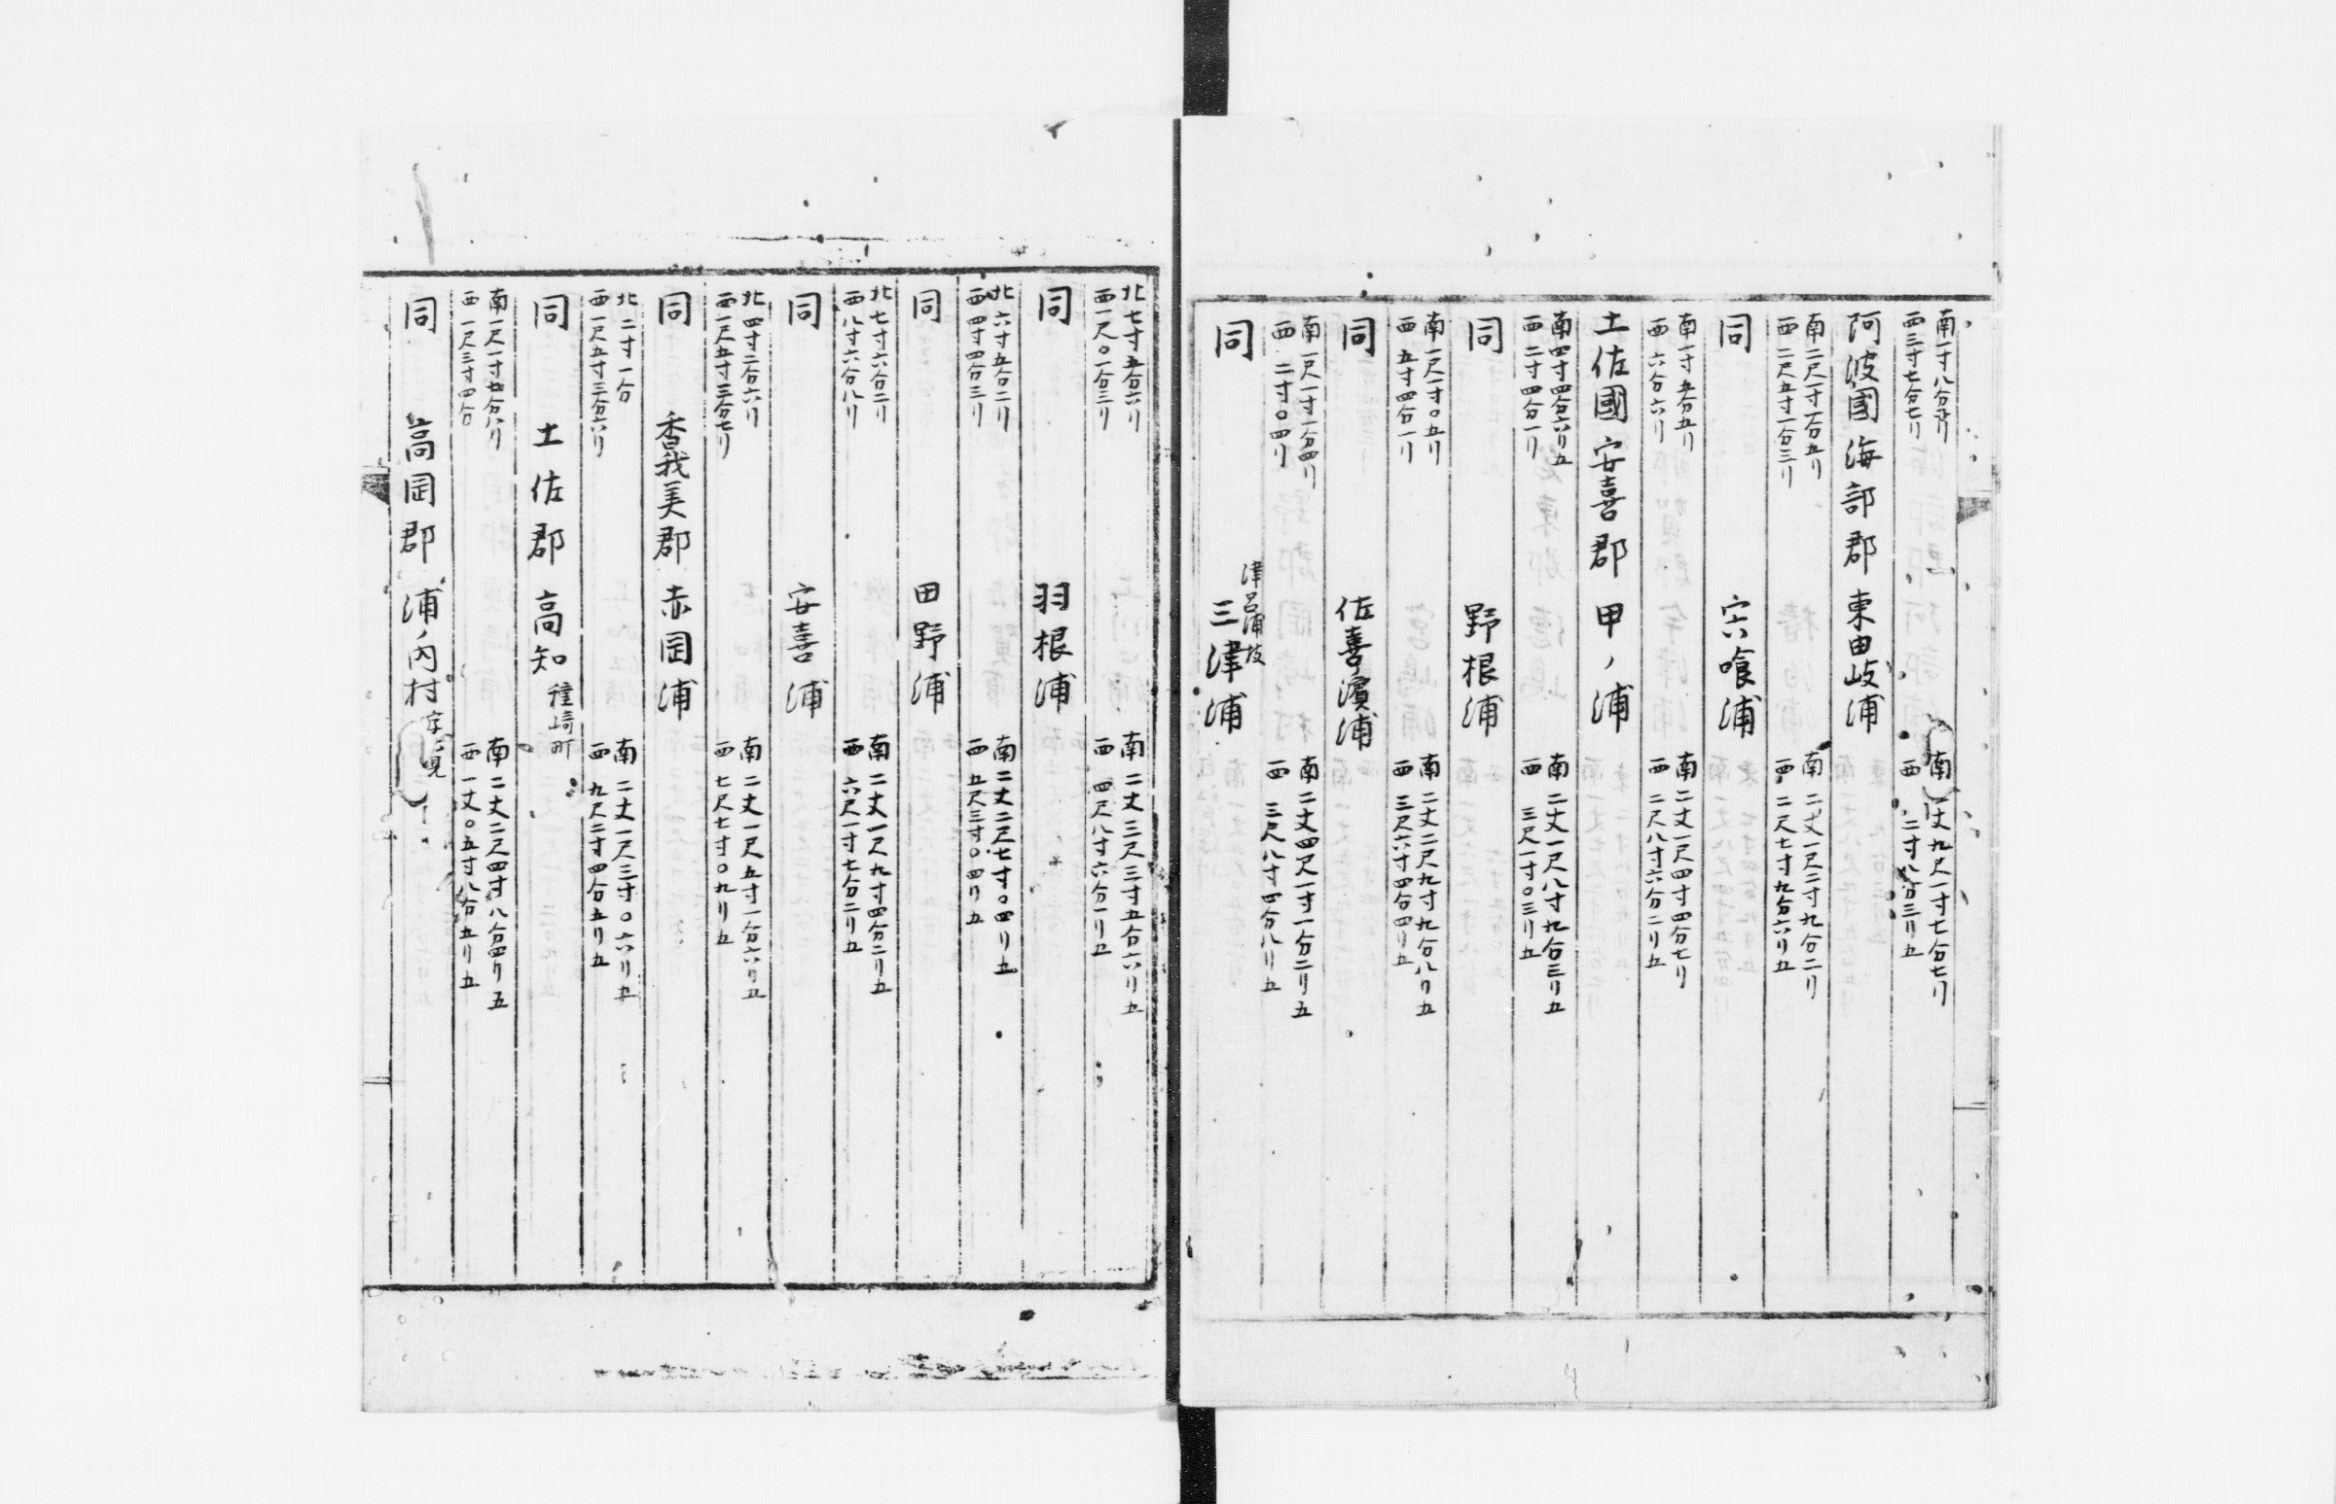 南一寸八分 リ 南一丈九尺一寸七分七リ
西三寸七分七リ 西 二寸八分三リ五
阿波國海部郡東由岐浦
南二尺一寸一分五リ 南二丈一尺二寸九分二リ
西二尺五寸一分三リ 西二尺七寸九分六リ五
同 宍喰浦
南一寸五分五リ 南二丈一尺四寸四分七リ
西 六分六リ 西二尺八寸六分二リ五
土佐國安喜郡甲ノ浦
南四寸四分六リ五 南二丈一尺八寸九分三リ五
西二寸四分一リ 西三尺一寸〇三リ五
同 野根浦
南一尺一寸〇五リ 南二丈二尺九寸九分八リ五
西五寸四分一リ 西三尺六寸四分四リ五
同 佐喜濱浦
南一尺一寸一分四リ 南二丈四尺一寸一分二リ五
西 二寸〇四リ 西三尺八寸四分八リ五
津呂浦坂
同 三津浦
北七寸五分六リ 南二丈三尺三寸五分六リ五
西一尺〇一分三リ 西四尺八寸六分一リ五
同 羽根浦
北六寸五分二リ 南二丈二尺七寸〇四リ五
西四寸四分三リ 西五尺三寸〇四リ五
同 田野浦
北七寸六分二リ 南二丈一尺九寸四分二リ五
西八寸六分八リ 西六尺一寸七分二リ五
同 安喜浦
北四寸二分六リ 南二丈一尺五寸一分六リ五
西一尺五寸三分七リ 西七尺七寸〇九リ五
同 香我美郡赤岡浦
北二寸一分 南二丈一尺三寸〇六リ五
西一尺五寸三分六リ 西九尺二寸四分五リ五
同 土佐郡高知 種崎町
南一尺一寸七分八リ 南二丈二尺四寸八分四リ五
西一尺三寸四分 西一丈〇五寸八分五リ五
同 高岡郡浦ノ内村